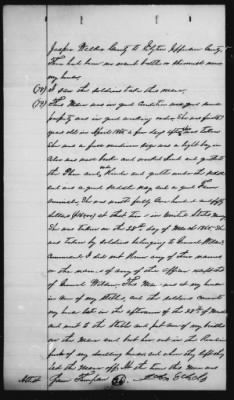 Jasper Walker County to Elyton Jefferson County
There had been no recent battle or skirmish near
my house.
(18) I saw the soldiers take this mare.
(19) This Mare was in good condition and good
property and in good working order. She was four
years old in April 1865 a few days after
She was a fine medium size and a light bay in
and was both and was gentle
to the Plow and gentle under the saddle
and was a good saddle mare and a good Farm
animal. She was worth fully One hundred and fifty
dollars ($150.00) at that time in United States Money
She was taken on the 28th day of March 1865. She
was taken by soldiers belonging to General Wilson's
Command I did not know any of their names
or the names of any of the officers except
of General Wilson. This Mare was at my house
in one of my stables and the soldiers came to
my house late in the afternoon of the 28th of March
and went to the Stable and put one of my bridles
on the mare and led her out in the
front of my dwelling house and when they left they
led the Mare off. At the time this Mare was
Attest